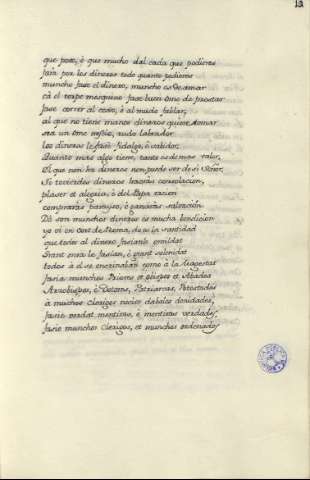 12
que pose, è que mucho dal cada que pedieres
faria por los dineros todo quanto pedieres
muncho fase el dinero, muncho es de amar
cà el torpe mesquino fase buen ome de prestar
fase correr al coxo, è al mudo fablar,
al que no tiene manos dineros quiere tomar
sea un ome nescio, rudo labrador
los dineros le fasen fidalgo, è sabidor,
Quanto mas algo tiene, tanto es de mas valor,
El que non ha dineros non puede ser de si Señor.
Si tovierdes dineros havràs consolacion,
plaser et alegria, è del Papa racion
compraràs paraiso, è ganaràs salvacion.
Dò son munchos dineros es mucha bendicion
yo vi en Cort de Roma, do es la santidad
que todos al dinero fasianle omildat
Grant onra le fasian, è grant solenidat
todos à el se encrinaban como à la Magestat
faria munchos Priores et obispos et Abades
Arzobispos, è Dotores, Patriarcas, Potestades
à muchos Clerigos necios dabales denidades,
fasie verdat mentiras, è mentiras verdades.
fasie munchos Clerigos, et munchos ordenados